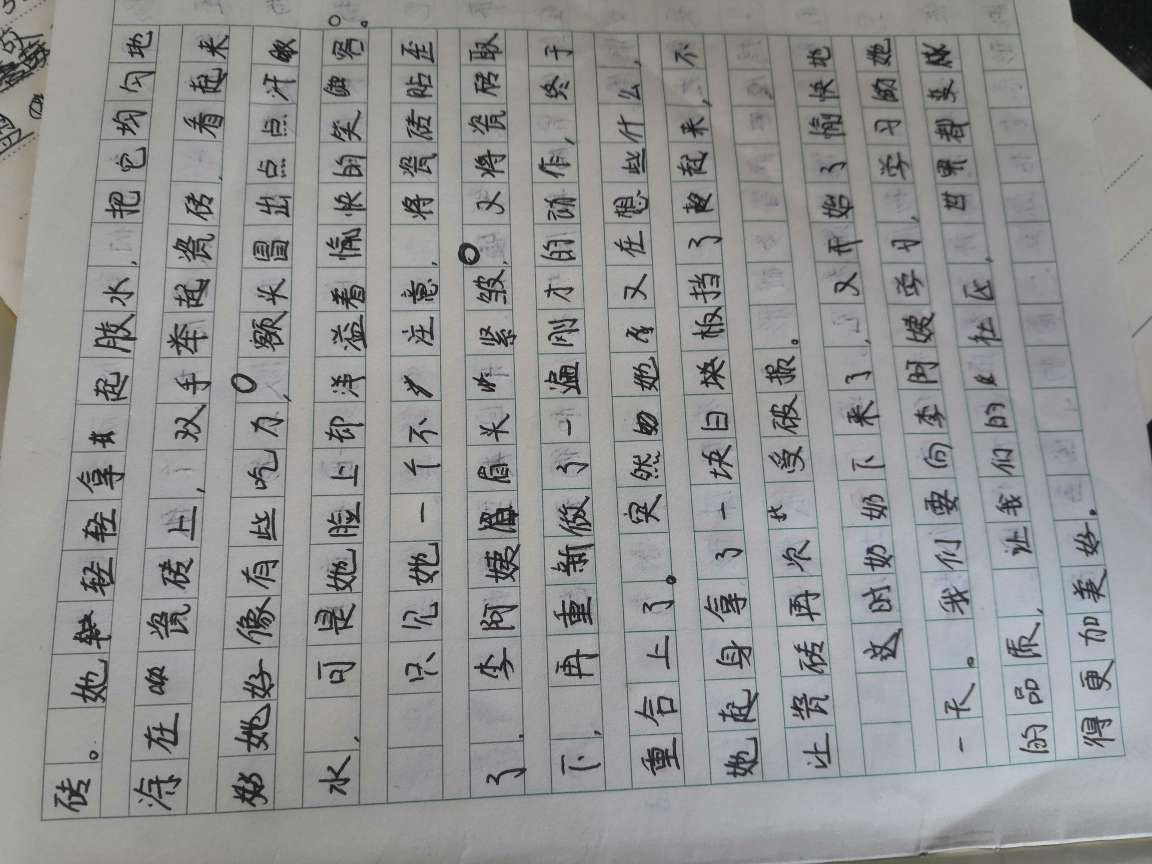 砖。她轻轻拿起胶水，把它均匀地
涂在瓷砖上，双手举起瓷砖，看起来
她好像有些吃力，额头冒出点点汗
水，可是她脸上却洋溢着愉快的笑容。
只见她一个不注意，将瓷砖贴歪
了，李阿姨眉头紧皱，又将瓷砖取
下，再重新做了一遍刚才的动作，终于
重合上了。突然她又在想些什么，
她起身拿了一块白块板挡了起来，不
让瓷砖再次受破损。
这时奶奶下来了，又开始了愉快地
一天。我们要向李阿姨学习，学习她
的品质，让我们的社区，世界都变
得更加美好。